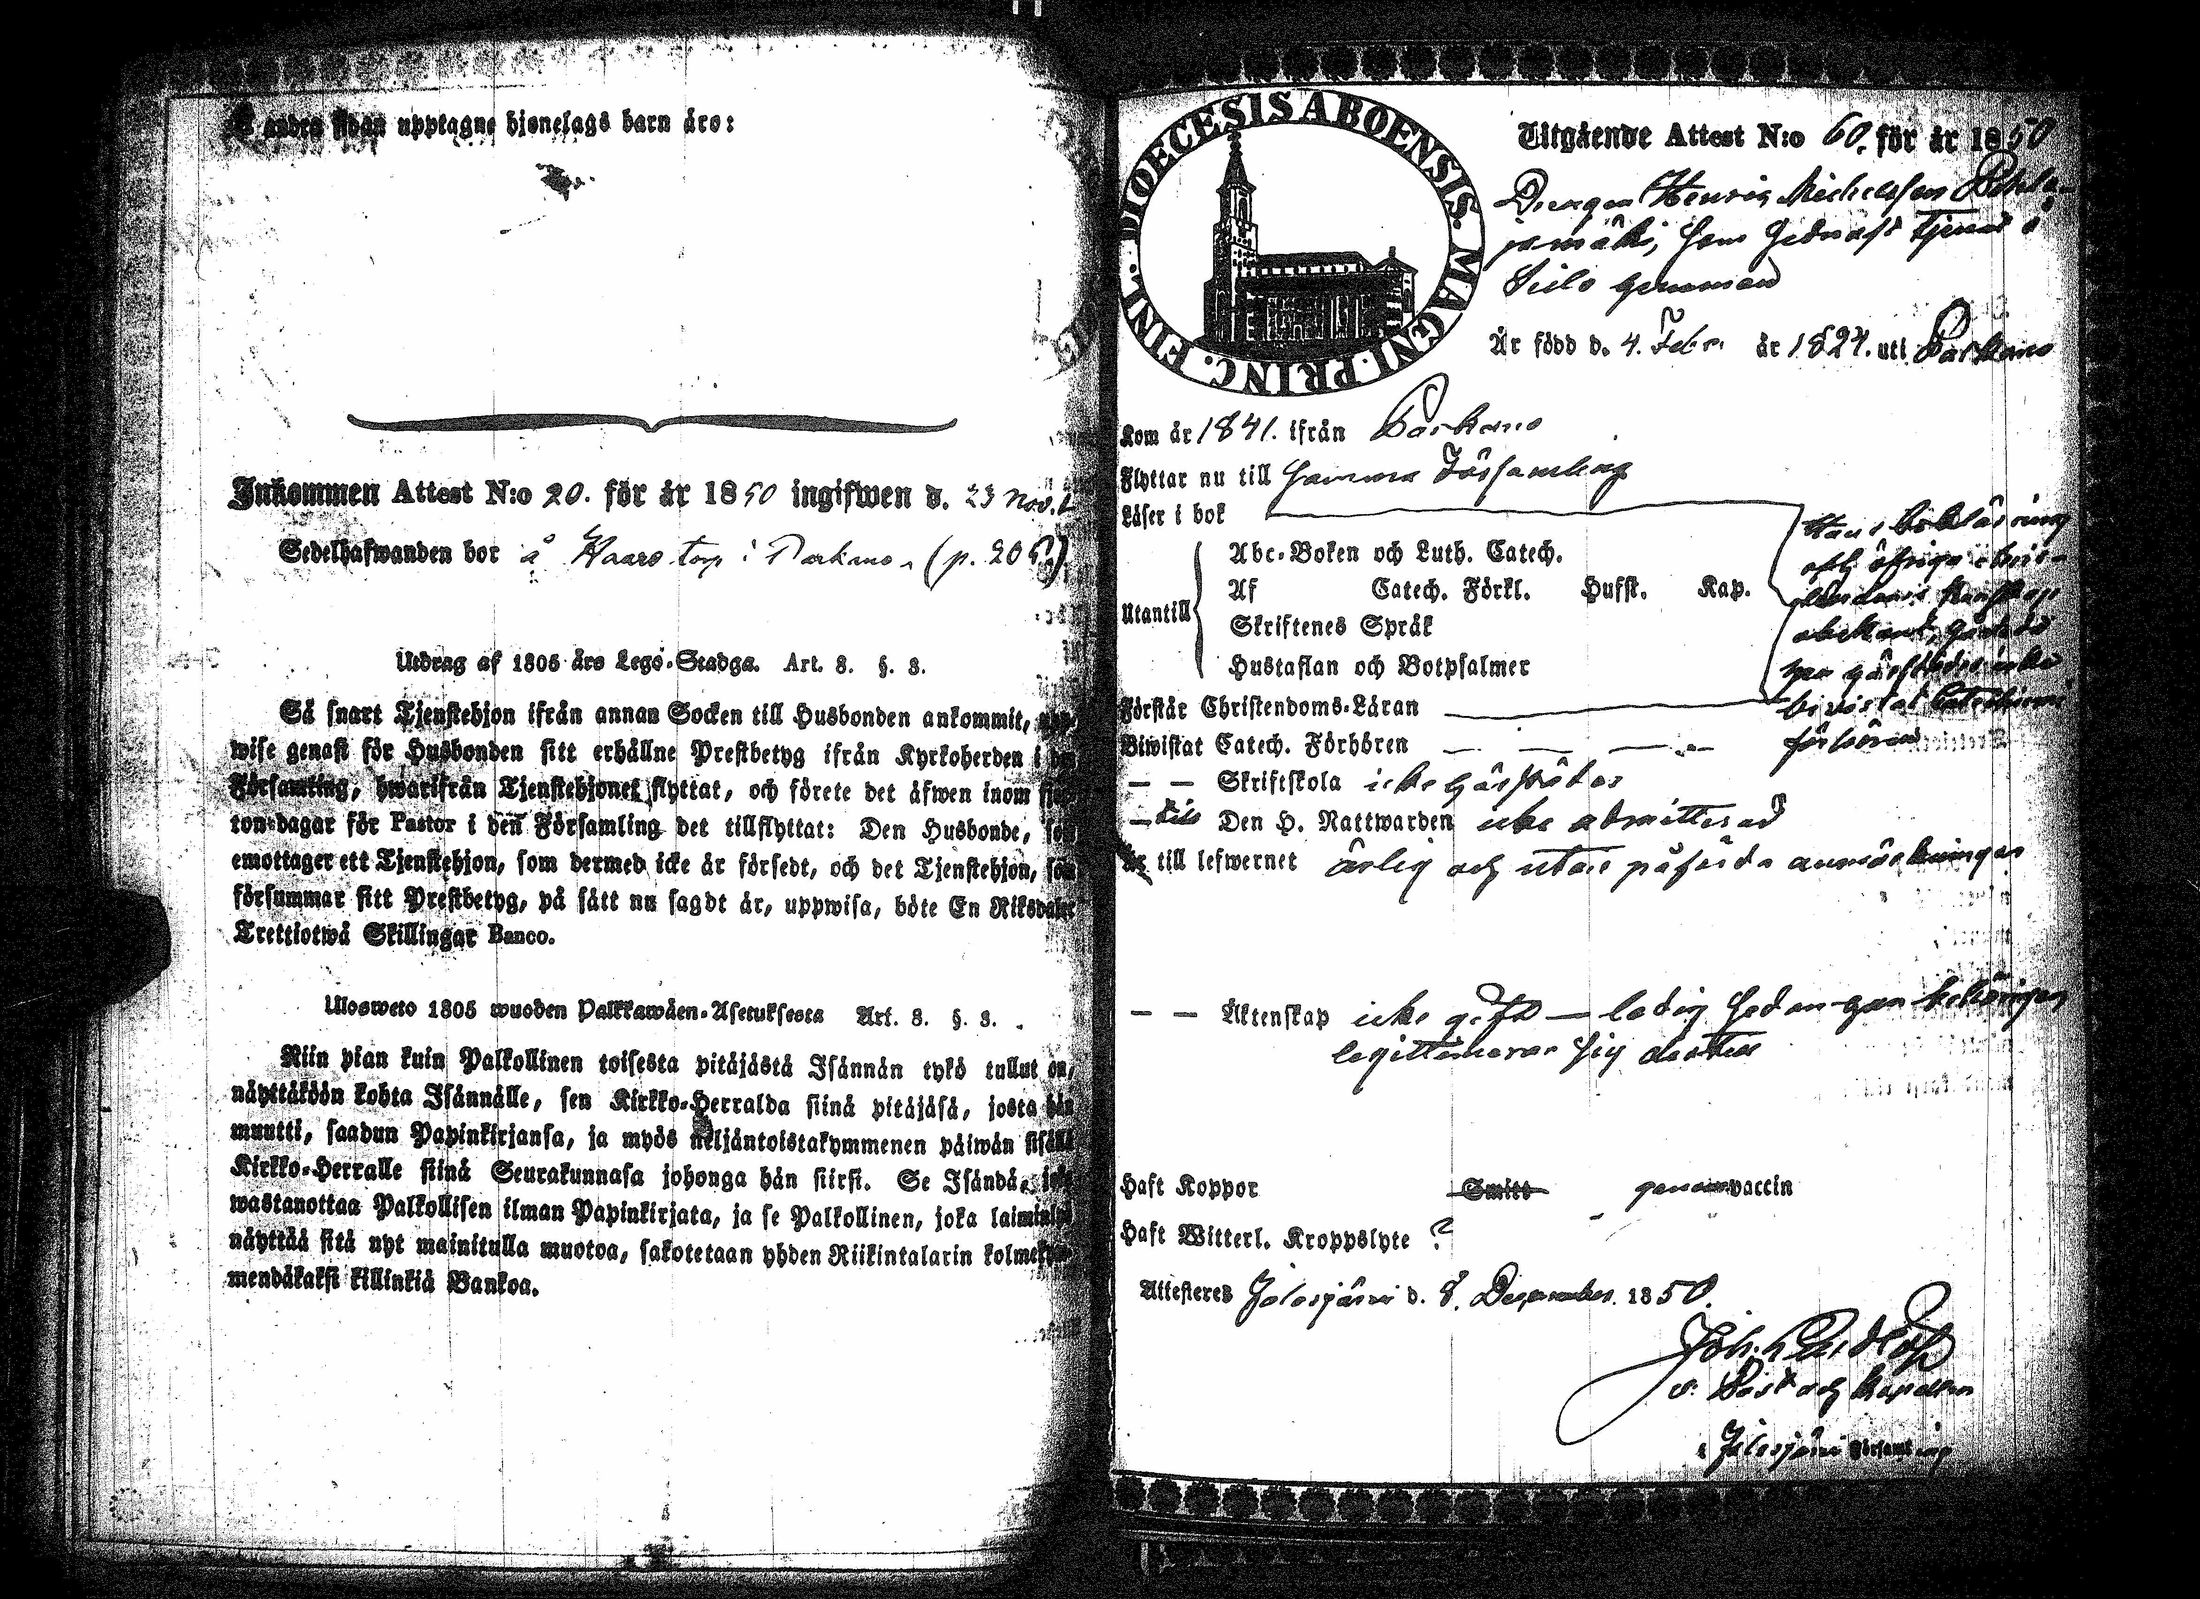 andra sidan upptagne hjonelags barn äro:
Inkommen Attest N:o 20. för år 1850 ingifwen d. 23 Nov.
Sedelhafwanden bor å Haaro torp i Parkano (p. 205.)
Utdrag af 1805 års Lego-Stadga. Art. 8. §. 3.
Så snart Tjenstehjon ifrån annan Socken till Husbonden ankommit,
wise genast för Husbonden sitt erhållne Prestbetyg ifrån Kyrkoherden i
Församling, hwarifrån Tjenstehjonet flyttat, och förete det äfwen inom
ton dagar för Pastor i den Församling det tillflyttat: Den Husbonde, som
emottager ett Tjenstehjon, som dermed icke är försedt, och det Tjenstehjon, som
försummar sitt Prestbetyg, på sätt nu sagdt är, uppwisa, böte En Riksdaler
Trettiotwå Skillingar Banco.
Ulosweto 1805 wuoden Palkkawäen-Asetuksesta Art. 8. §. 3.
Niin pian kuin Palkollinen toisesta pitäjästä Isännän tykö tullut on,
näyttäköön kohta Isännälle, sen Kirkko-Herralda siinä pitäjäsä, josta hän
muutti, saadun Papinkirjansa, ja myös neljäntoistakymmenen päiwän sisällä
Kirkko-Herralle siinä Seurakunnasa johonga hän siirsi. Se Isändä, joka
wastanottaa Palkollisen ilman Papinkirjata, ja se Palkollinen, joka laiminlyö
näyttää sitä nyt mainitulla muotoa, sakotetaan yhden Riikintalarin kolmekym-
mendäkaksi killinkiä Bankoa.
DIOECESIS ABOENSIS. MAGNI. PRINC. FINL.
Utgående Attest N:o 60. för år 1850
Drengen Henric Michelsson
jamäki, som sednast tjenat i
Är född d. 4. Febr. år 1824. uti Parkano
Kom år 1841. ifrån Parkano
Flyttar nu till samma Församling
Läser i bok
Hans bokläsning
och öfriga chris-
Abc-Boken och Luth. Catech.
Af Catech. Förkl. Hufst. Kap.
Utantill
Skriftenes Språk
Hustaflan och Botpsalmer
Förstår Christendoms-Läran
Biwistat Catech. Förhören
bivistat Catechismi
förhören
— — Skriftskola icke
— Den H. Nattwarden icke admitterad
Är till lefwernet ärlig och utan påförda anmärkningar
— — Äktenskap icke gift — ledig sedan han behörigen
legitimerar sig dertill
Haft Koppor Smitt genom vaccin
Haft Witterl. Kroppslyte ?
Attesteres Jalasjärvi d. 8. December 1850.
Joh.
v. Past och Kapellan
i Jalasjärvi Församling